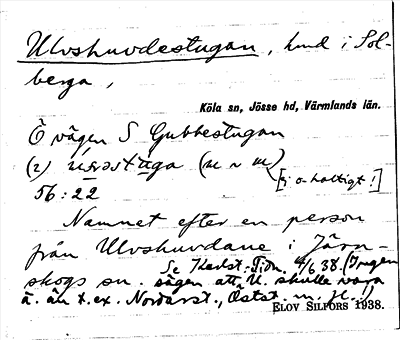 Ulvshuvdestugan, hmd i Sol-
berga,
Köla sn, Jösse hd, Värmlands län.
Ö vägen S Gubbestugan
(2)
56:22
Namnet efter en person
från Ulvshuvdane i Järn-
skogs sn. Se Karlst. Tidn. 4/6 38. (Ingen
sägen att U. skulle vara
ä. än t.ex. Nordarst., Östst. m. fl.!)
ELOV SILFORS 1938.